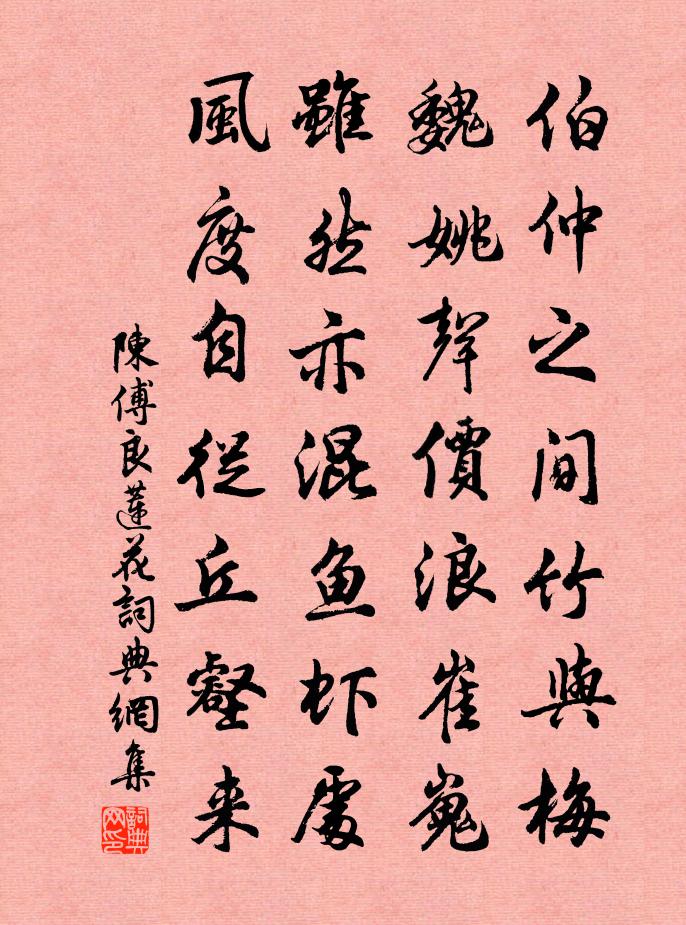 伯仲之间竹與梅
魏姚聲價浪崔嵬
雖然亦混鱼虾處
風度自従丘壑来
陳傅良蓮花詞典網集
詞典网印